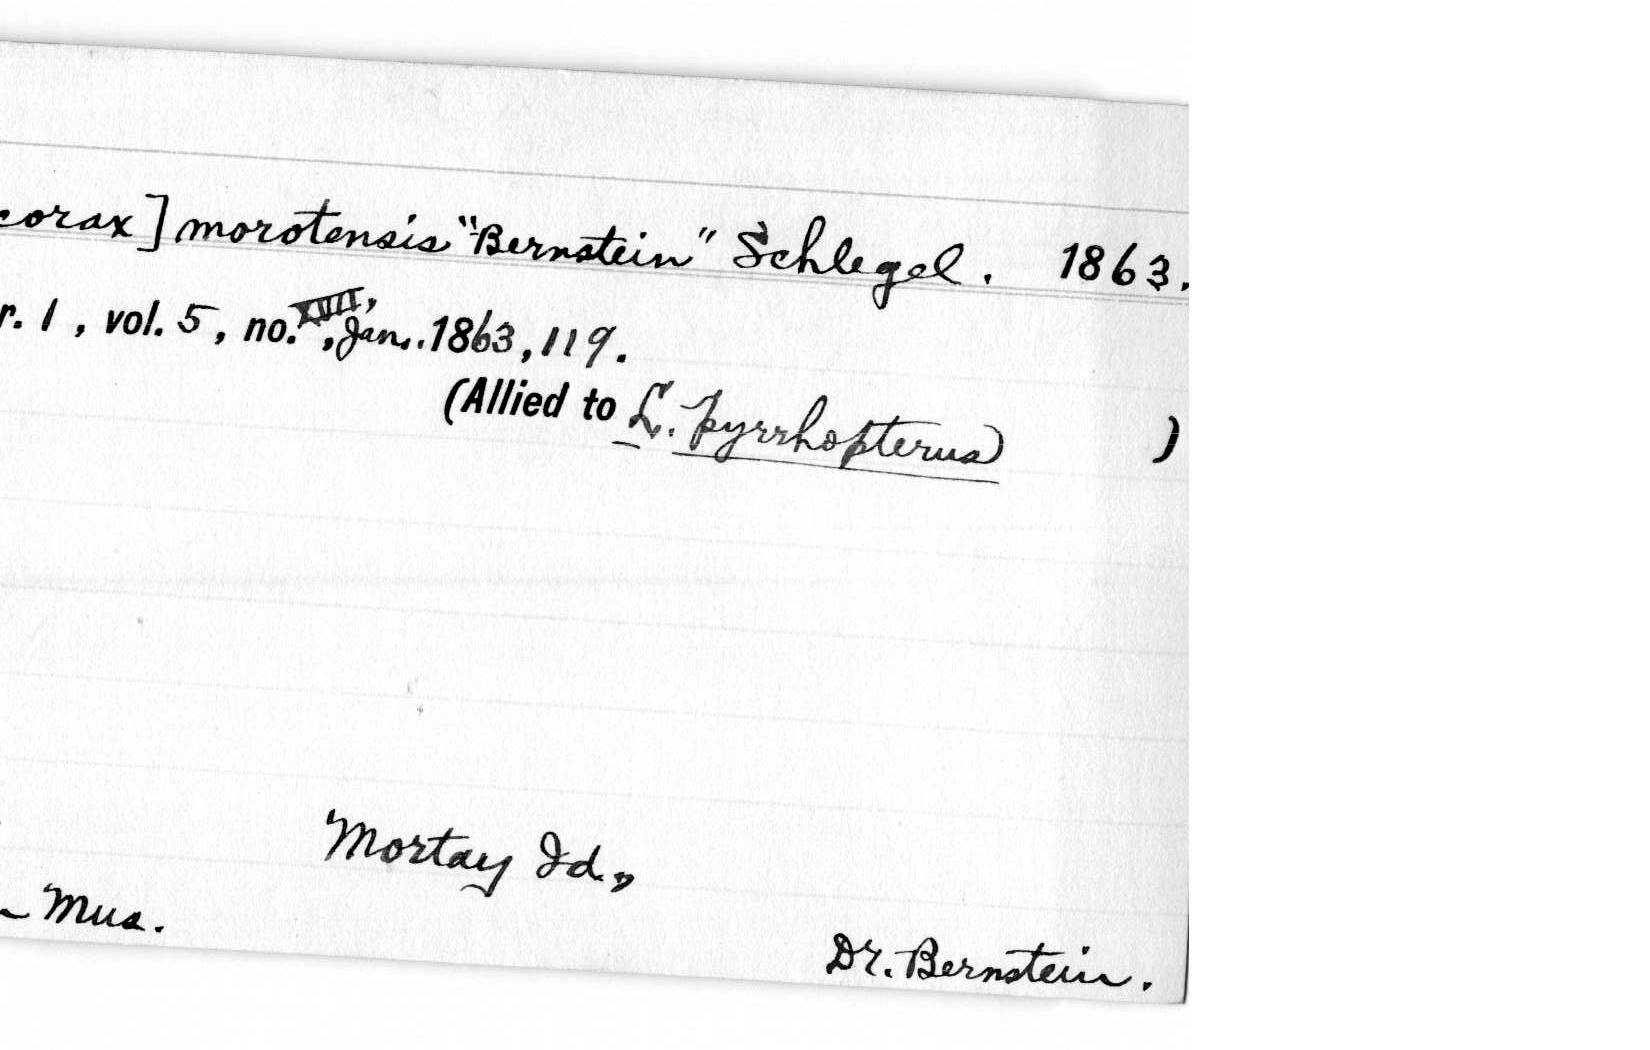 corax] morotensis "Bernstein" Schlegel. 1863.
r. 1, vol. 5, no. XVII, Jan. 1863, 119.
(Allied to L. pyrrhopterus)
Mortay Id.,
Mus.
Dr. Bernstein.